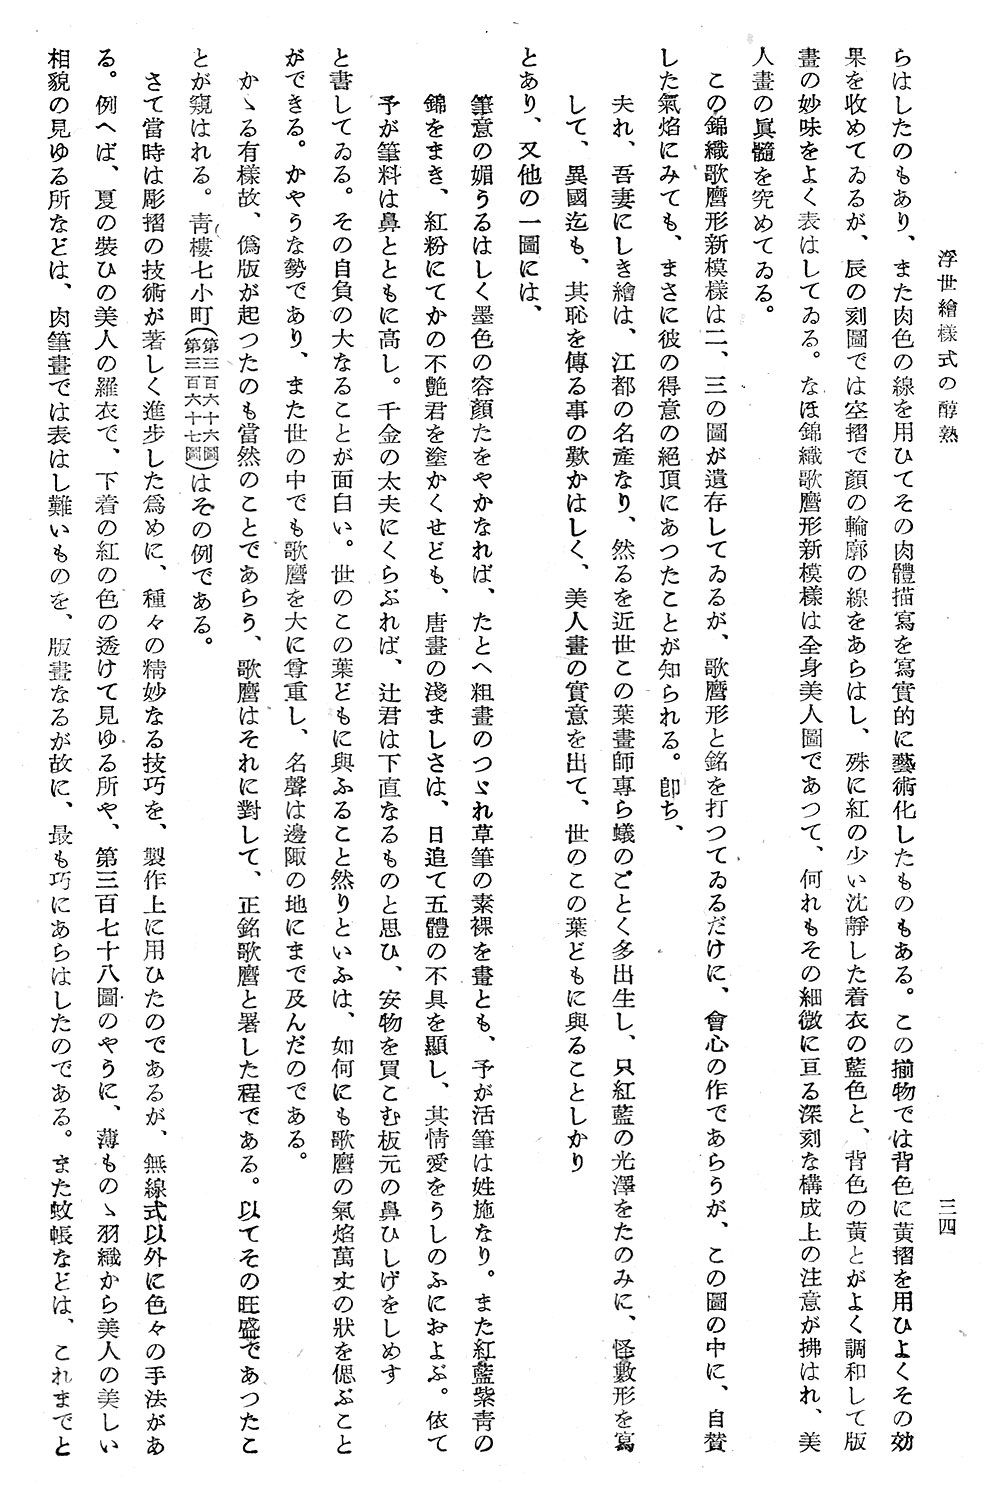 浮世繪樣式の醇熟
三四
らはしたのもあり、また肉色の線を用ひてその肉體描寫を寫實的に藝術化したものもある。この揃物では背色に黃摺を用ひよくその効
果を收めてゐるが、辰の刻圖では空摺で顏の輪廓の線をあらはし、殊に紅の少い沈靜した着衣の藍色と、背色の黃とがよく調和して版
畫の妙味をよく表はしてゐる。なほ錦織歌麿形新模樣は全身美人圖であつて、何れもその細微に亘る深刻な構成上の注意が拂はれ、美
人畫の眞髓を究めてゐる。
この錦織歌麿形新模樣は二、三の圖が遺存してゐるが、歌麿形と銘を打つてゐるだけに、會心の作であらうが、この圖の中に、自賛
した氣焰にみても、まさに彼の得意の絕頂にあつたことが知られる。卽ち、
夫れ、吾妻にしき繪は、江都の名產なり、然るを近世この葉畫師專ら蟻のごとく多出生し、只紅藍の光澤をたのみに、怪敷形を寫
して、異國迄も、其恥を傳る事の歎かはしく、美人畫の實意を出て、世のこの葉どもに與ることしかり
とあり、又他の一圖には、
筆意の媚うるはしく墨色の容顏たをやかなれば、たとへ粗畫のつゞれ草筆の素裸を畫とも、予が活筆は姓施なり。また紅藍紫靑の
錦をまき、紅粉にてかの不艶君を塗かくせども、唐畫の淺ましさは、日追て五體の不具を顯し、其情愛をうしのふにおよぶ。依て
予が筆料は鼻とともに高し。千金の太夫にくらぶれば、辻君は下直なるものと思ひ、安物を買こむ板元の鼻ひしげをしめす
と書してゐる。その自負の大なることが面白い。世のこの葉どもに與ふること然りといふは、如何にも歌麿の氣焰萬丈の狀を偲ぶこと
ができる。かやうな勢であり、また世の中でも歌麿を大に尊重し、名聲は邊陬の地にまで及んだのである。
かゝる有樣故、僞版が起つたのも當然のことであらう、歌麿はそれに對して、正銘歌麿と署した程である。以てその旺盛であつたこ
とが窺はれる。靑樓七小町(第三百六十六圖第三百六十七圖)はその例である。
さて當時は彫摺の技術が著しく進步した爲めに、種々の精妙なる技巧を、製作上に用ひたのであるが、無線式以外に色々の手法があ
る。例へば、夏の裝ひの美人の羅衣で、下着の紅の色の透けて見ゆる所や、第三百七十八圖のやうに、薄ものゝ羽織から美人の美しい
相貌の見ゆる所などは、肉筆畫では表はし難いものを、版畫なるが故に、最も巧にあらはしたのである。また蚊帳などは、これまでと